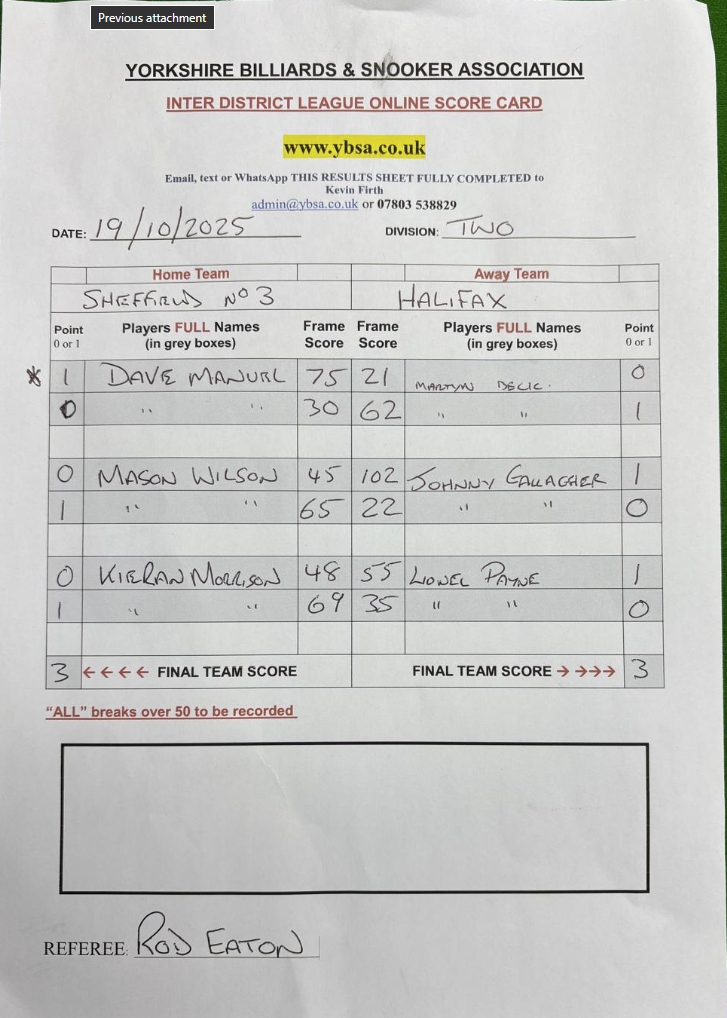 Previous attachment
YORKSHIRE BILLIARDS & SNOOKER ASSOCIATION
INTER DISTRICT LEAGUE ONLINE SCORE CARD
www.ybsa.co.uk
Email, text or WhatsApp THIS RESULTS SHEET FULLY COMPLETED to
Kevin Firth
admin@ybsa.co.uk or 07803 538829
DATE: 19/10/2025 DIVISION: TWO
Home Team Away Team
SHEFFIELD Nº 3 HALIFAX
Point 0 or 1 Players FULL Names (in grey boxes) Frame Score Frame Score Players FULL Names (in grey boxes) Point 0 or 1
* 1 DAVE MANUEL 75 21 MARTYN DELIC. 0
0 " " 30 62 " " 1
0 MASON WILSON 45 102 JOHNNY GALLAGHER 1
1 " " 65 22 " " 0
0 KIERAN MORRISON 48 55 LIONEL PAYNE 1
1 " " 69 35 " " 0
3 ←←←← FINAL TEAM SCORE FINAL TEAM SCORE →→→→ 3
“ALL” breaks over 50 to be recorded
REFEREE: ROD EATON